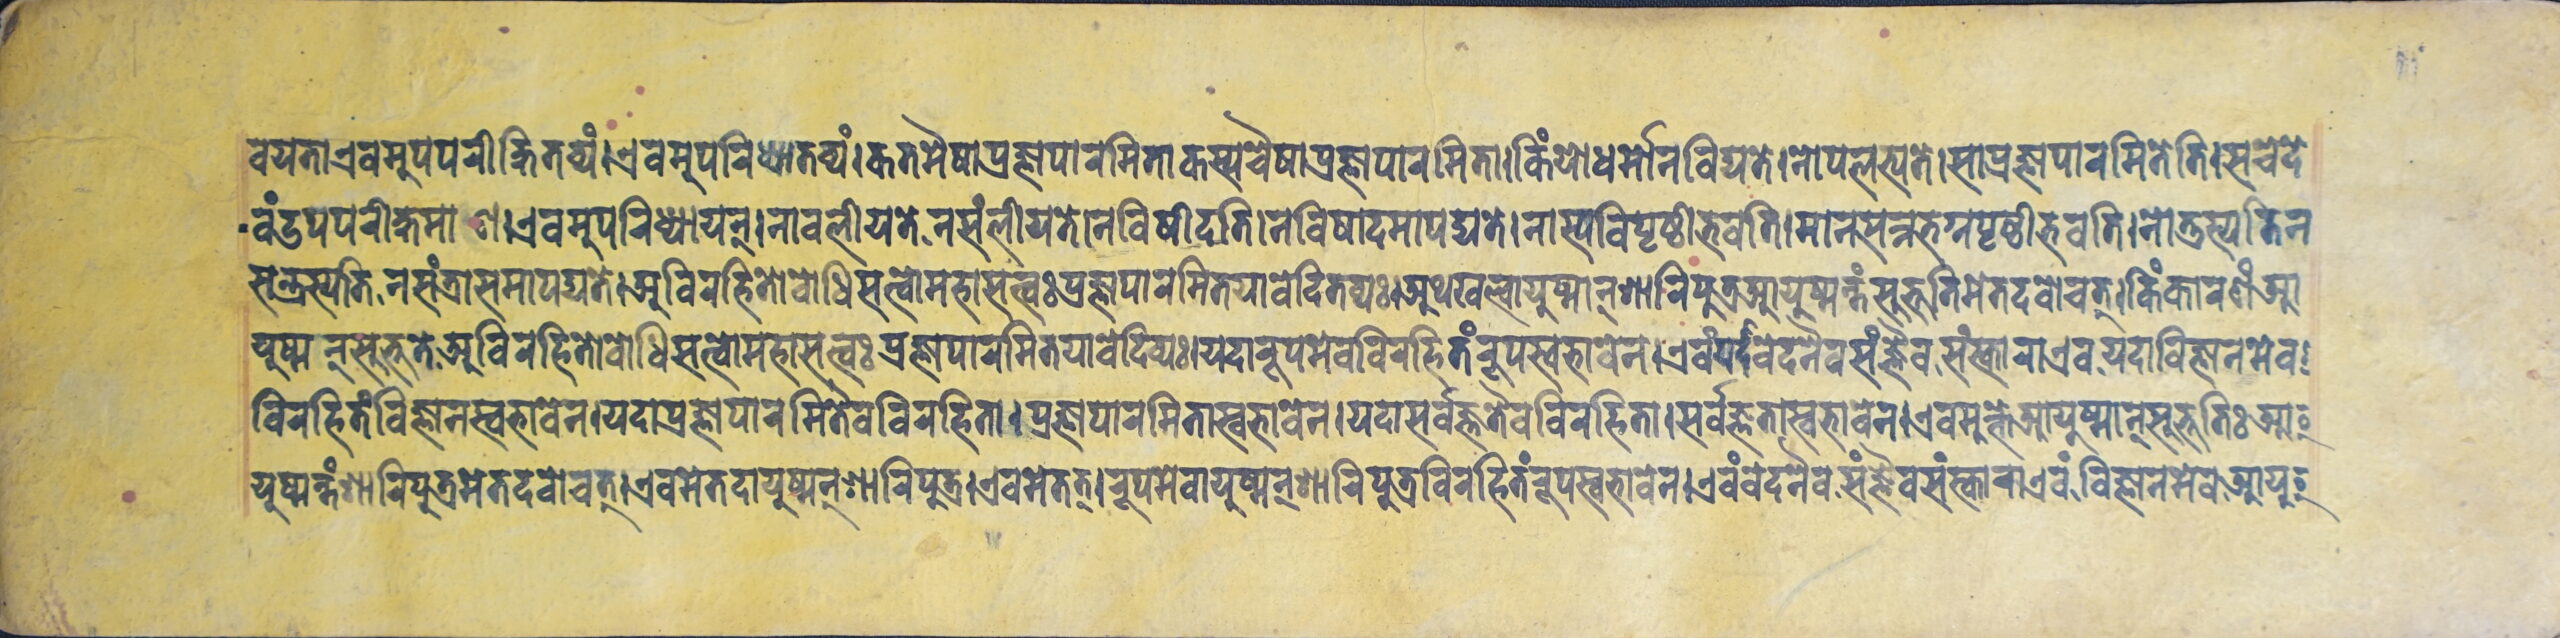 वयता।एवमुपपरीक्षितव्यं।एवमुपरिध्यातव्यं।कतमैषाप्रज्ञापारमिताकस्यचैषाप्रज्ञापारमिता।किंयोधर्मोनविद्यते।नोपलभ्यते।साप्रज्ञापारमितेति।सचेदे
वंउपपरीक्षमाण।एवमुपरिध्यायन्।नावलीयते,नसंलीयते।नविषीदति।नविषादमापद्यते।नास्यविपृष्ठीभवति।मानसन्नभग्नपृष्ठीभवति।नोत्रस्यतिन
सन्त्रस्यति,नसंत्रासमापद्यते।अविरहितोबोधिसत्वोमहासत्त्वःप्रज्ञापारमितयावेदितव्यः।अथखल्वायुष्मान्शारिपुत्रआयुष्मन्तंसुभूतिमेतदवोचत्।किंकारणंआ
युष्मन्सुभूते,अविरहितोबोधिसत्वोमहासत्त्वःप्रज्ञापारमितयावेदिव्यः।यदारूपमेवविरहितंरूपस्वभावेन।एवंयदिवेदनैवसंज्ञैव,संस्काराएव,यदाविज्ञानमेव
विरहितंविज्ञानस्वभावेन।यदाप्रज्ञापारमितैवविरहिता।प्रज्ञापारमितास्वभावेन।यदासर्वज्ञतैवविरहिता।सर्वज्ञतास्वभावेन।एवमुक्तेआयुष्मान्सुभूतिःआ
युष्मन्तंशारिपुत्रमेतदवोचत्।एवमेतदायुष्मन्शारिपुत्र।एवमेतत्।रूपमेवायुष्मन्शारिपुत्रविरहितंरूपस्वभावेन।एवंवेदनैव,संज्ञैवसंस्काराएवं,विज्ञानमेवआयु